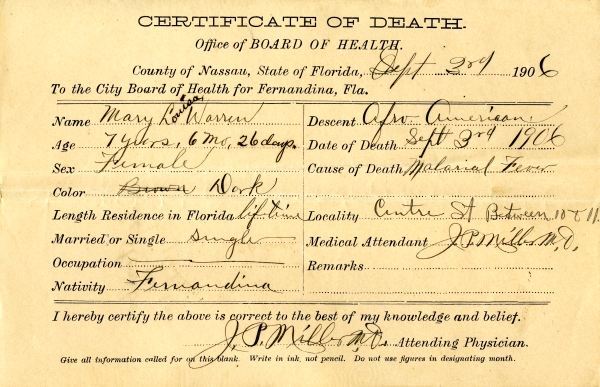 CERTIFICATE OF DEATH.
Office of BOARD OF HEALTH.
County of Nassau, State of Florida, Sept 3rd 1906
To the City Board of Health for Fernandina, Fla.
Name Mary Louisa Warren
Age 7 years, 6 mo, 26 days.
Sex Female
Color Brown Dark
Length Residence in Florida life time
Married or Single Single
Occupation
Nativity Fernandina
Descent Afro American
Date of Death Sept 3rd 1906
Cause of Death Malarial Fever
Locality Centre St Between 10 & 11.
Medical Attendant J. P. Mills M.D.
Remarks
I hereby certify the above is correct to the best of my knowledge and belief.
J. P. Mills M.D. Attending Physician.
Give all information called for on this blank. Write in ink, not pencil. Do not use figures in designating month.